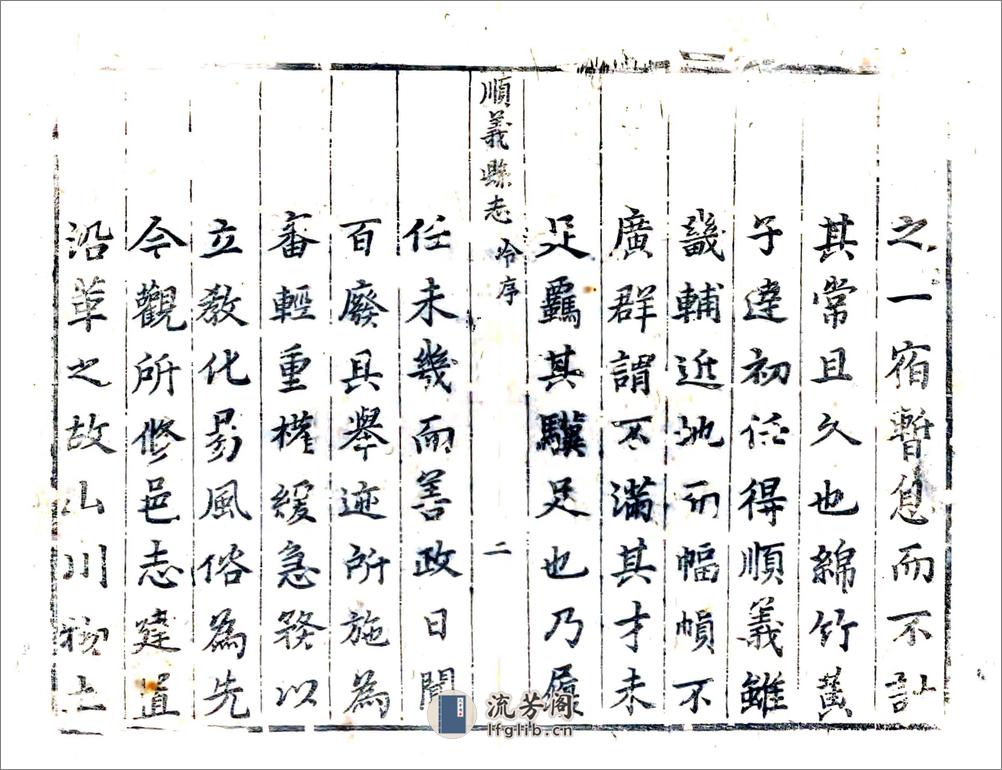 之一宿暫息而不計
其常且久也綿竹黃
子達初任得順義雖
畿輔近地而幅幀不
廣群謂不滿其才未
足羈其驥足也乃履
順義縣志 冷序 二
任未幾而善政日聞
百廢具舉迹所施為
審輕重權緩急務以
立教化易風俗為先
今觀所修邑志建置
沿革之故山川物土
流芳阁
lfglib.cn